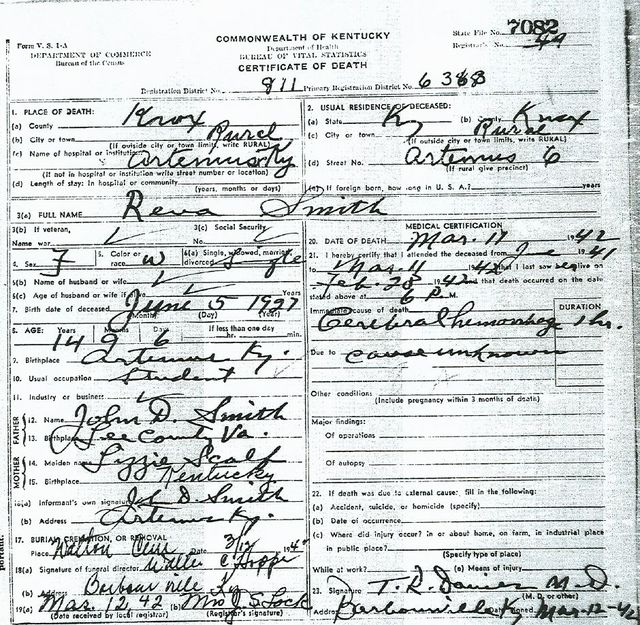 COMMONWEALTH OF KENTUCKY
Form V. S. 1-A
DEPARTMENT OF COMMERCE
Bureau of the Census
Department of Health
BUREAU OF VITAL STATISTICS
CERTIFICATE OF DEATH
State File No. 7082
Registrar's No. 49
Registration District No. 811 Primary Registration District No. 6388
1. PLACE OF DEATH:
(a) County Knox
(b) City or town Rural
(If outside city or town limits, write RURAL)
(c) Name of hospital or institution: Artemus Ky
(If not in hospital or institution write street number or location)
(d) Length of stay: In hospital or community
(years, months or days)
2. USUAL RESIDENCE OF DECEASED:
(a) State Ky (b) County Knox
(c) City or town Rural
(If outside city or town limits, write RURAL)
(d) Street No. Artemus 6
(If rural give precinct)
(e) If foreign born, how long in U. S. A.? years
3(a) FULL NAME Reva Smith
3(b) If veteran, 3(c) Social Security
Name war No.
4. Sex F 5. Color or race W 6(a) Single, widowed, married, divorced Single
6(b) Name of husband or wife
6(c) Age of husband or wife if Years
7. Birth date of deceased June 5 1927
(Month) (Day) (Year)
8. AGE: Years Months Days If less than one day
14 9 6 hr. min.
9. Birthplace Artemus Ky.
10. Usual occupation Student
11. Industry or business
FATHER
12. Name John D. Smith
13. Birthplace Lee County Va.
MOTHER
14. Maiden name Lizzie Scalf
15. Birthplace Kentucky
16(a) Informant's own signature J. D. Smith
(b) Address Artemus Ky.
17. BURIAL, CREMATION, OR REMOVAL
Place Date 3/12 194
18(a) Signature of funeral director
(b) Address Barbourville Ky
19(a) Mar. 12, 42 (b)
(Date received by local registrar) (Registrar's signature)
MEDICAL CERTIFICATION
20. DATE OF DEATH Mar. 11 1942
21. I hereby certify that I attended the deceased from 1941
to Mar. 11 1942 that I last saw alive on
Feb. 28 1942 and that death occurred on the date
stated above at 6 P. M.
Immediate cause of death DURATION
Cerebral hemorrhage 1 hr.
Due to cause unknown
Other conditions
(Include pregnancy within 3 months of death)
Major findings:
Of operations
Of autopsy
22. If death was due to external cause, fill in the following:
(a) Accident, suicide, or homicide (specify)
(b) Date of occurrence
(c) Where did injury occur? in or about home, on farm, in industrial place
in public place?
(Specify type of place)
While at work? (e) Means of injury
23. Signature T. R. Davies M. D.
(M. D. or other)
Address Barbourville Ky Date signed Mar-12-42